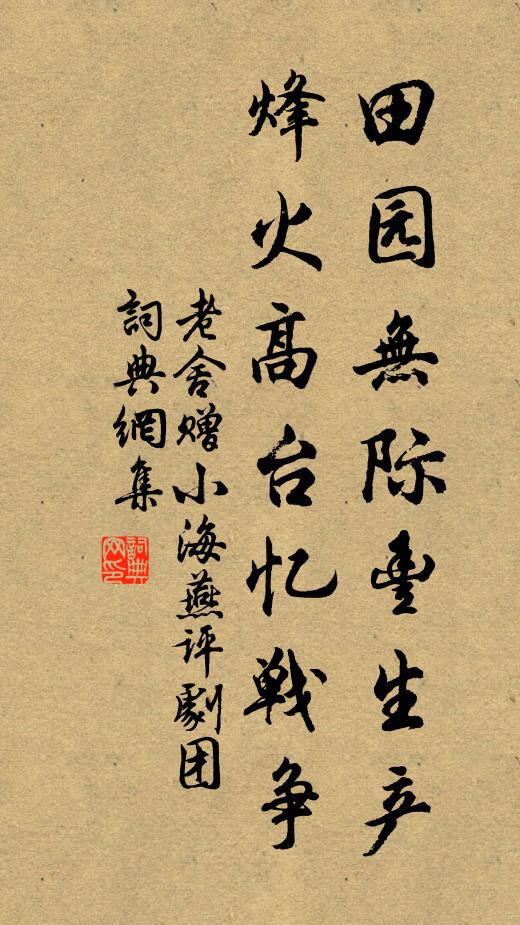 田园無际豊生产
烽火高台忆戦争
老舍赠小海燕评劇团
詞典網集
詞典网印